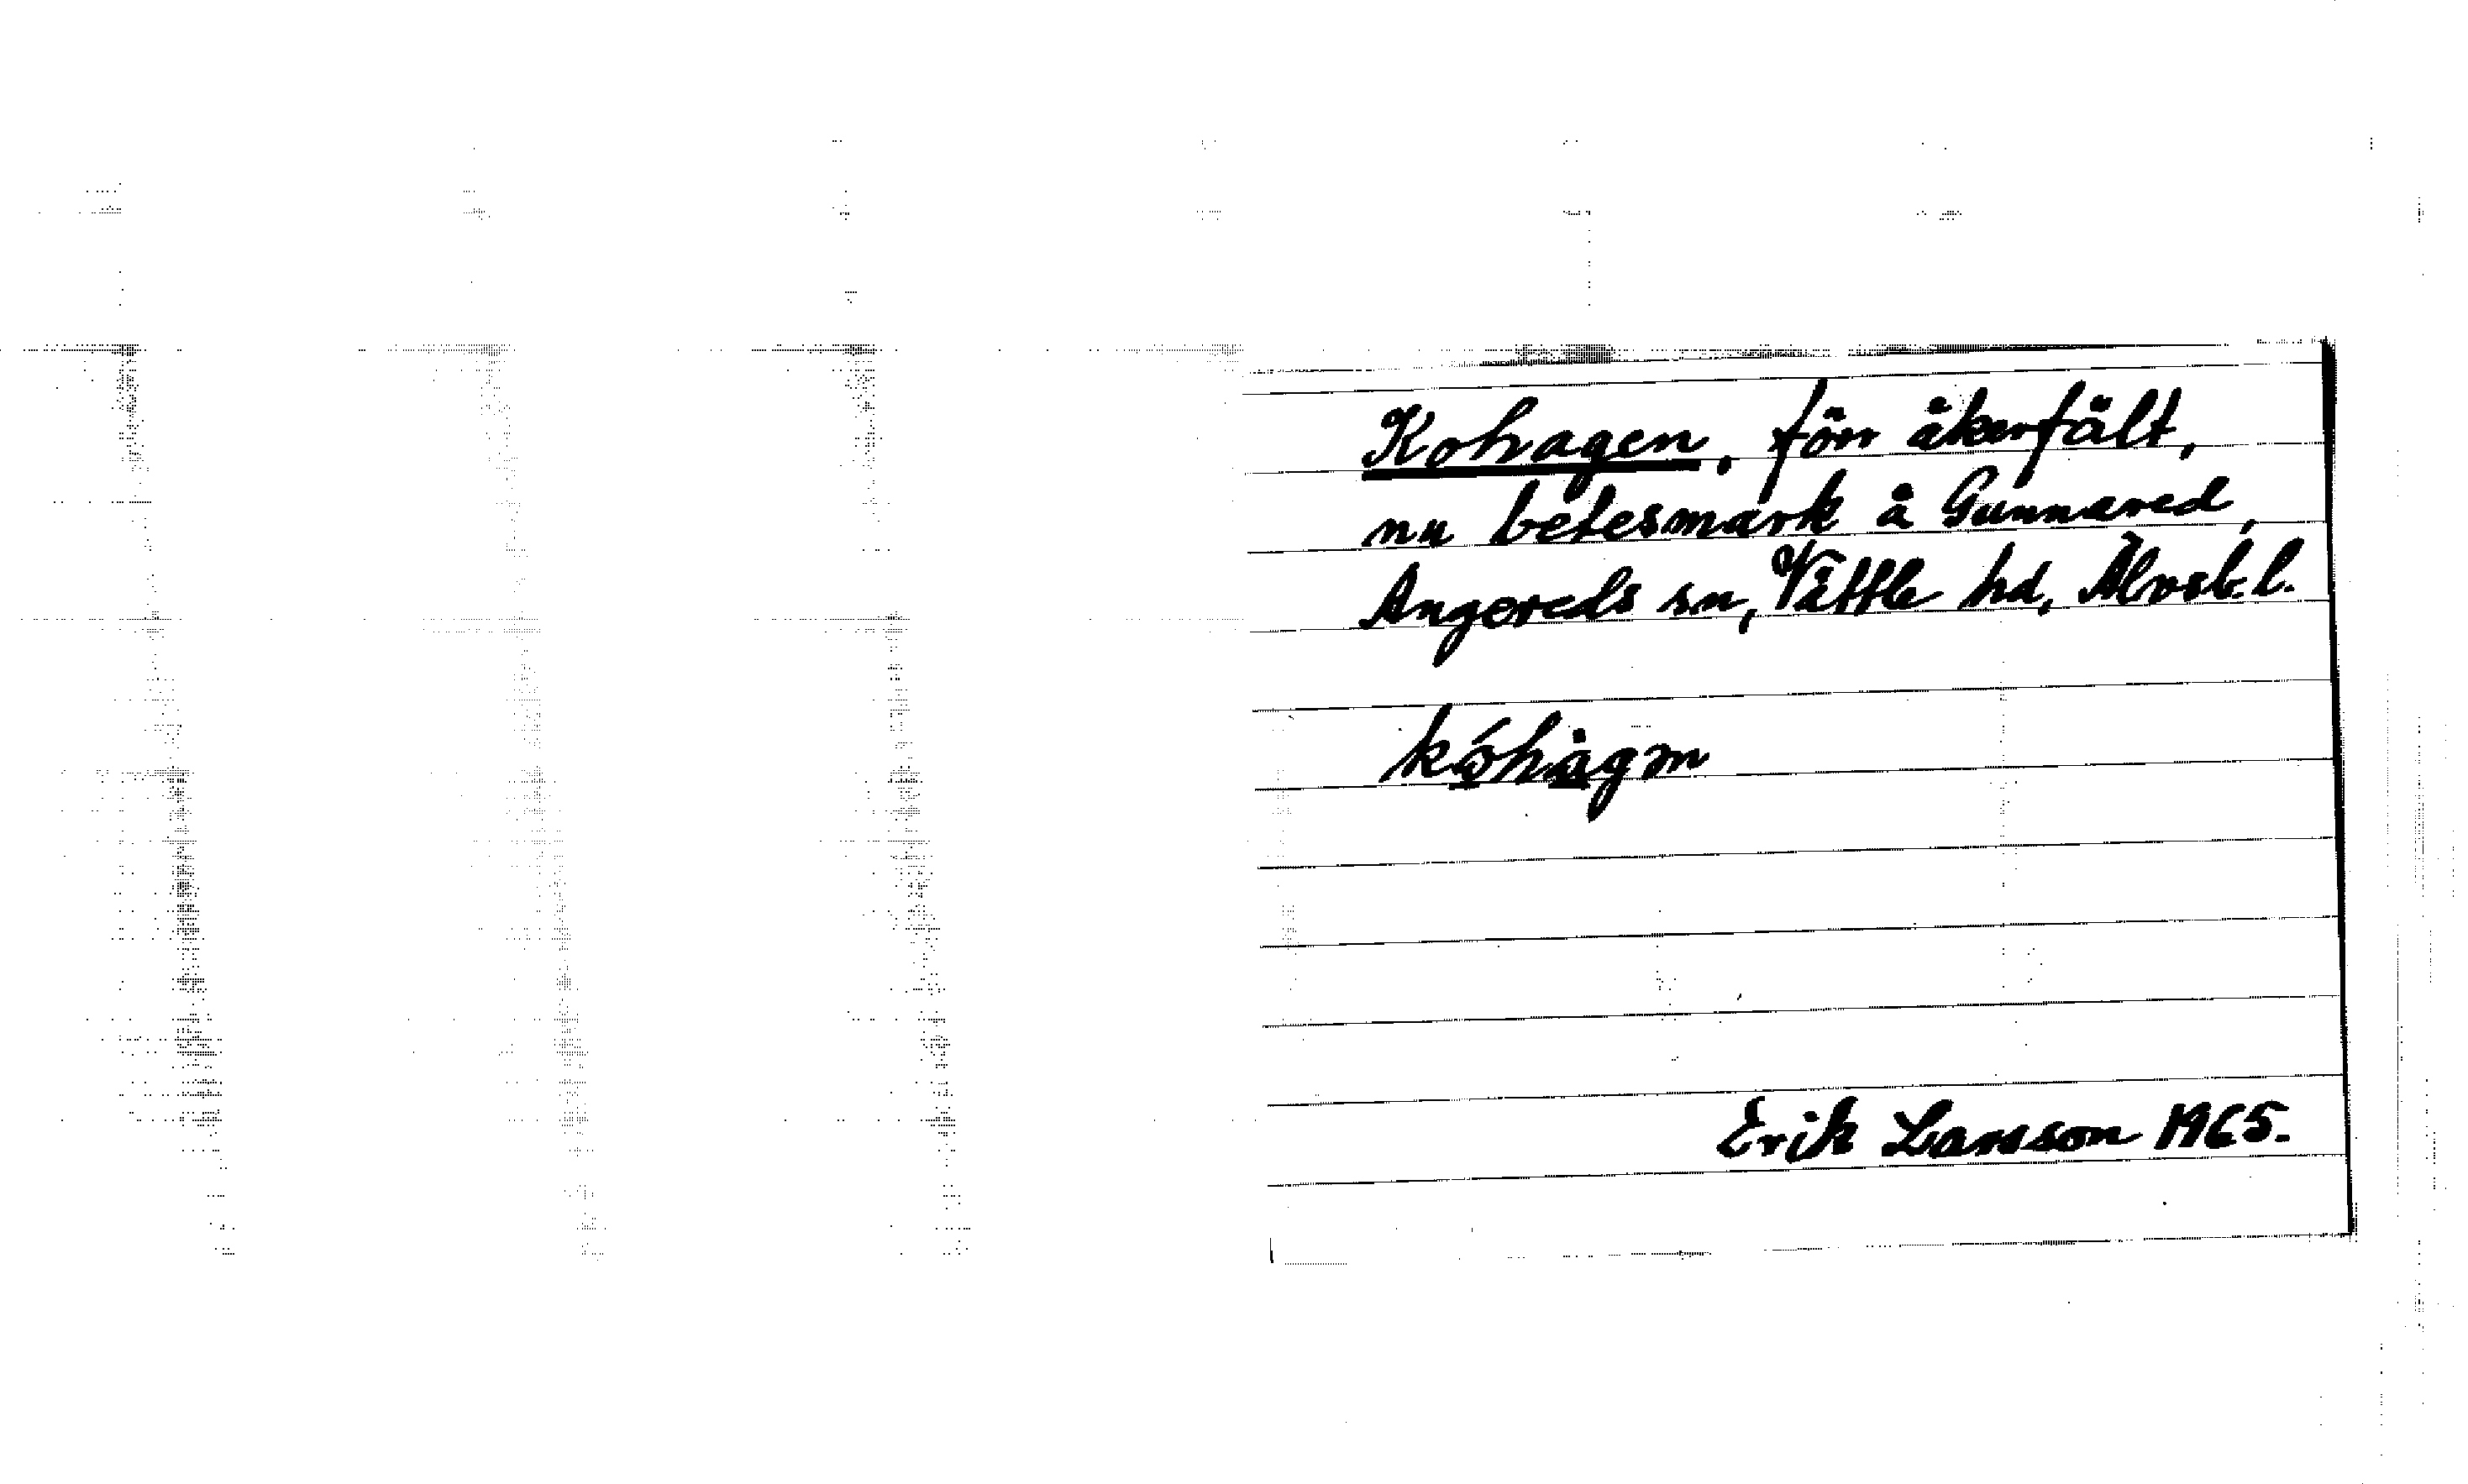 Kohagen, förr åkerfält,
nu betesmark å Gunnared,
Angereds sn, Vättle hd, Älvsb. l.
kóhàgɘn
Erik Larsson 1965.